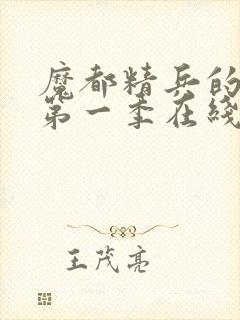 魔都精兵的
第一季在线
王茂亮